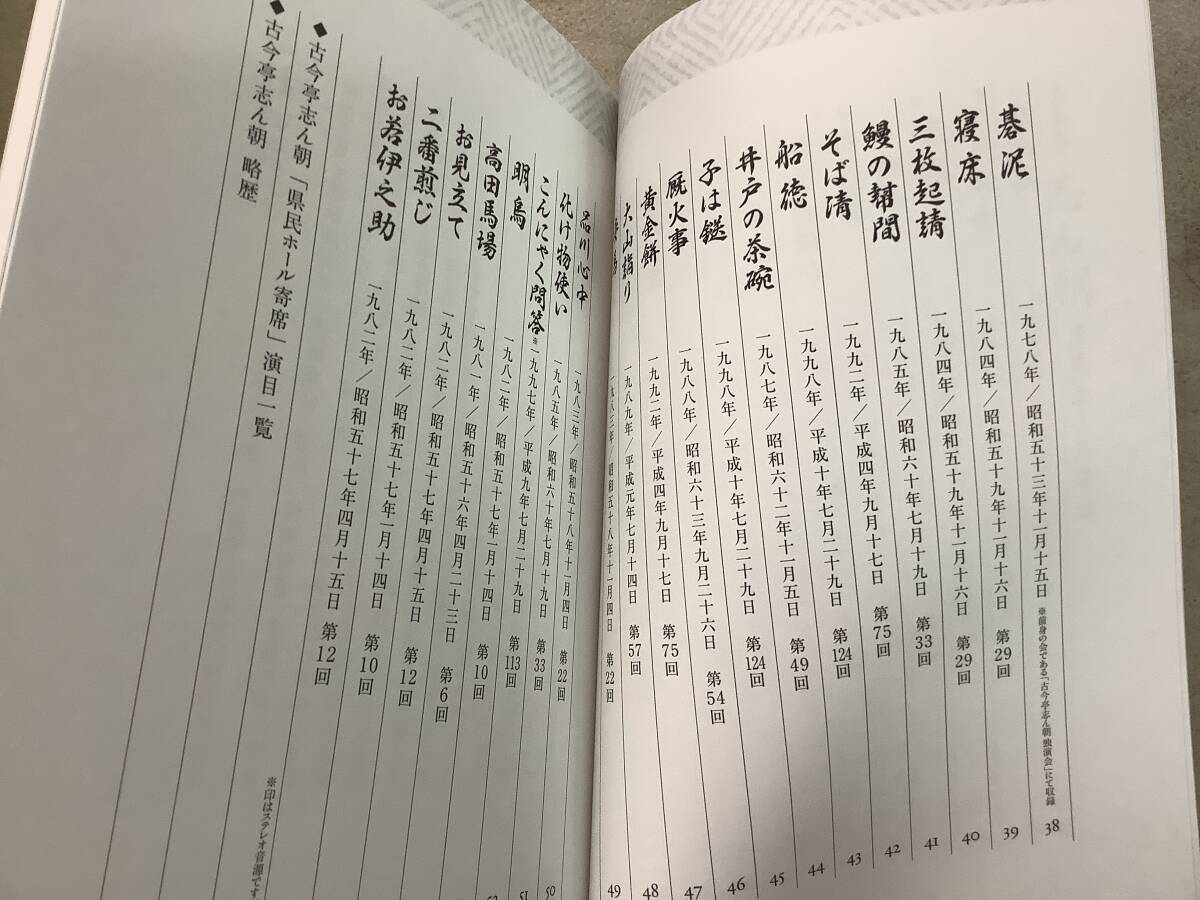 碁泥 一九七八年/昭和五十三年十一月十五日 ※前身の会である「古今亭志ん朝 独演会」にて収録 38
寝床 一九八四年/昭和五十九年十一月十六日 第29回 39
三枚起請 一九八四年/昭和五十九年十一月十六日 第29回 40
鰻の幇間 一九八五年/昭和六十年七月十九日 第33回 41
そば清 一九九二年/平成四年九月十七日 第75回 42
船徳 一九九八年/平成十年七月二十九日 第124回 43
井戸の茶碗 一九八七年/昭和六十二年十一月五日 第49回 44
子は鎹 一九九八年/平成十年七月二十九日 第124回 45
厩火事 一九八八年/昭和六十三年九月二十六日 第54回 46
黄金餅 一九九二年/平成四年九月十七日 第75回 47
大山詣り 一九八九年/平成元年七月十四日 第57回 48
一九八三年/昭和五十八年十一月四日 第22回 49
品川心中 一九八三年/昭和五十八年十一月四日 第22回 50
化け物使い 一九八五年/昭和六十年七月十九日 第33回 51
こんにゃく問答※ 一九九七年/平成九年七月二十九日 第113回
明烏 一九八二年/昭和五十七年一月十四日 第10回
高田馬場 一九八一年/昭和五十六年四月二十三日 第6回
お見立て 一九八二年/昭和五十七年四月十五日 第12回
二番煎じ 一九八二年/昭和五十七年一月十四日 第10回
お若伊之助 一九八二年/昭和五十七年四月十五日 第12回
◆古今亭志ん朝「県民ホール寄席」演目一覧
◆古今亭志ん朝 略歴
※印はステレオ音源です